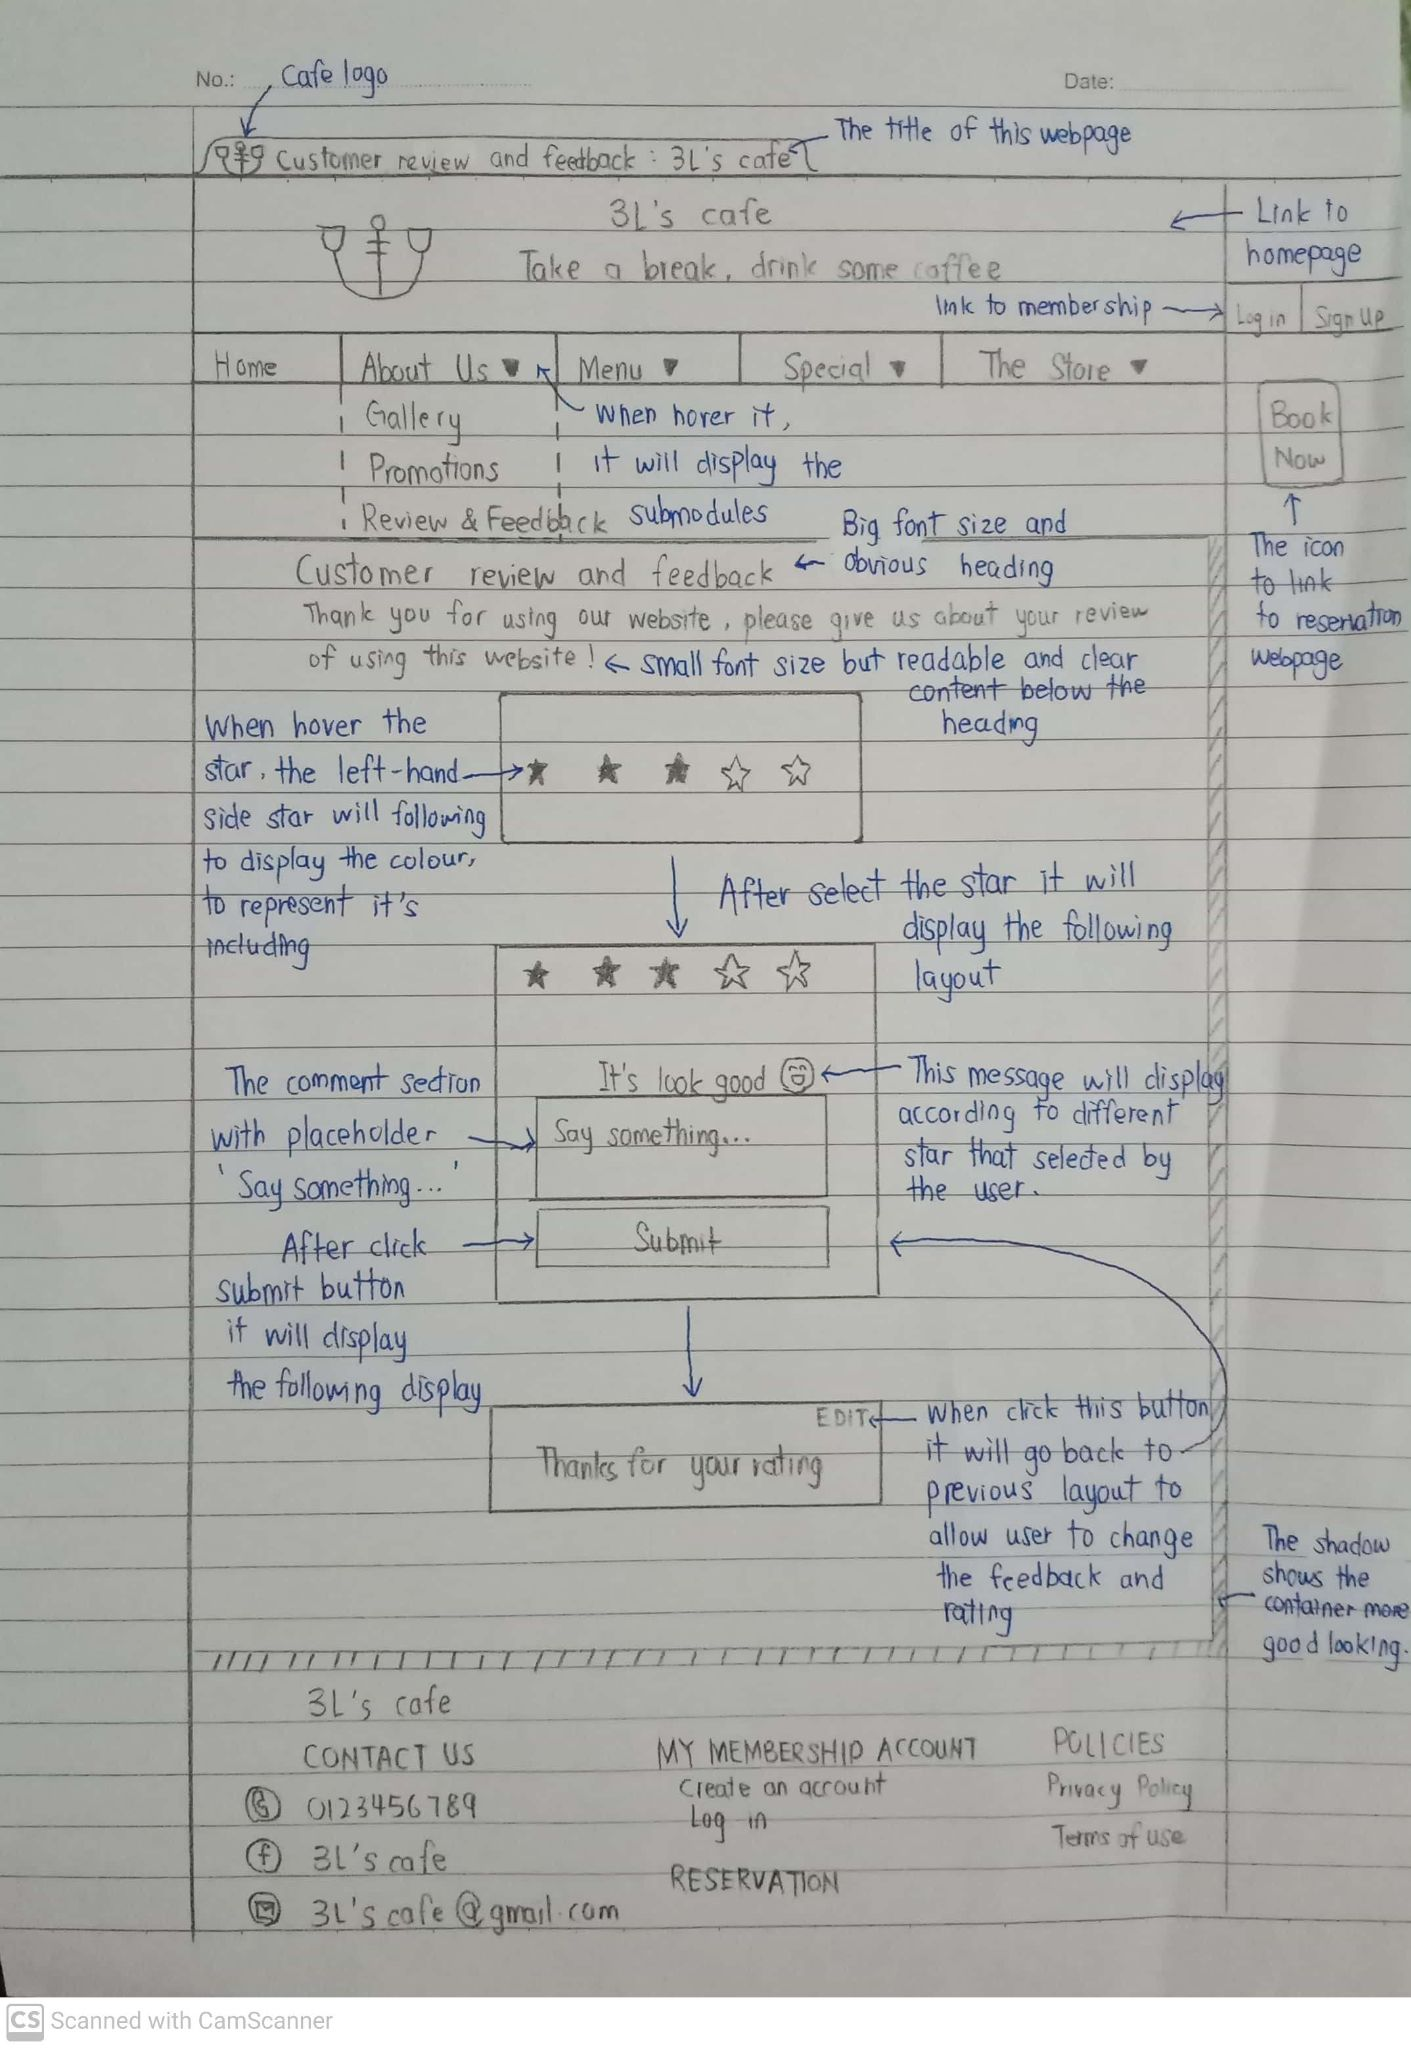 No.:
Cafe logo
Date:
The title of this webpage
Customer review and feedback : 3L's cafe
3L's cafe
Take a break, drink some coffee
Link to
homepage
link to membership
Log in
Sign Up
Home
About Us ▼
Menu ▼
Special ▼
The Store ▼
Gallery
Promotions
Review & Feedback
When hover it,
it will display the
submodules
Book
Now
The icon
to link
to reservation
webpage
Big font size and
obvious heading
Customer review and feedback
Thank you for using our website, please give us about your review
of using this website!
small font size but readable and clear
content below the
heading
When hover the
star, the left-hand
side star will following
to display the colour,
to represent it's
including
★ ★ ★ ☆ ☆
After select the star it will
display the following
layout
★ ★ ★ ☆ ☆
It's look good
This message will display
according to different
star that selected by
the user.
The comment section
with placeholder
'Say something...'
Say something...
Submit
After click
submit button
it will display
the following display
EDIT
Thanks for your rating
When click this button
it will go back to
previous layout to
allow user to change
the feedback and
rating
The shadow
shows the
container more
good looking.
3L's cafe
CONTACT US
0123456789
f 3L's cafe
3L's cafe@gmail.com
MY MEMBERSHIP ACCOUNT
Create an account
Log in
RESERVATION
POLICIES
Privacy Policy
Terms of use
CS Scanned with CamScanner